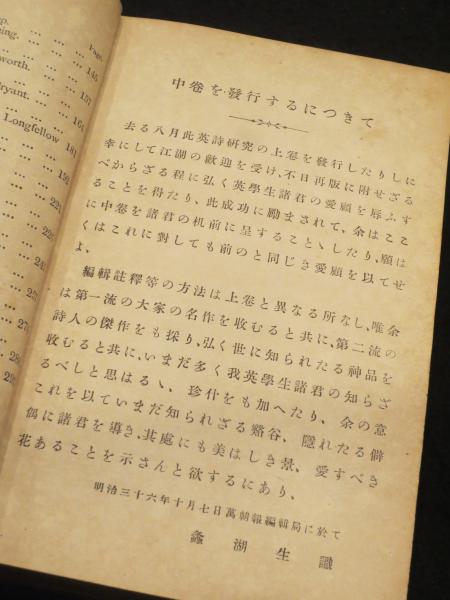 p. ... ... ... Page.
ning. ... ... ... 145
worth. ... ... 157
Bryant. ... ... 164
Longfellow 181
... ... ... 192
... ... ...
... ... 221
... ...
... ...
...
...
... 27
... 28
... 29
中卷を發行するにつきて
去る八月此英詩硏究の上卷を發行したりしに
幸にして江湖の歡迎を受け、不日再版に附せざる
べからざる程に弘く英學生諸君の愛顧を辱ふす
ることを得たり、此成功に勵まされて、余はここ
に中卷を諸君の机前に呈することゝしたり、願は
くはこれに對しても前のと同じき愛顧を以てせ
よ。
編輯註釋等の方法は上卷と異なる所なし、唯余
は第一流の大家の名作を收むると共に、第二流の
詩人の傑作をも採り、弘く世に知られたる神品を
收むると共に、いまだ多く我英學生諸君の知らざ
るべしと思はるゝ、珍什をも加へたり、余の意
これを以ていまだ知られざる谿谷、隱れたる僻
偶に諸君を導き、其處にも美はしき景、愛すべき
花あることを示さんと欲するにあり、
明治三十六年十月七日萬朝報編輯局に於て
蠡湖生識